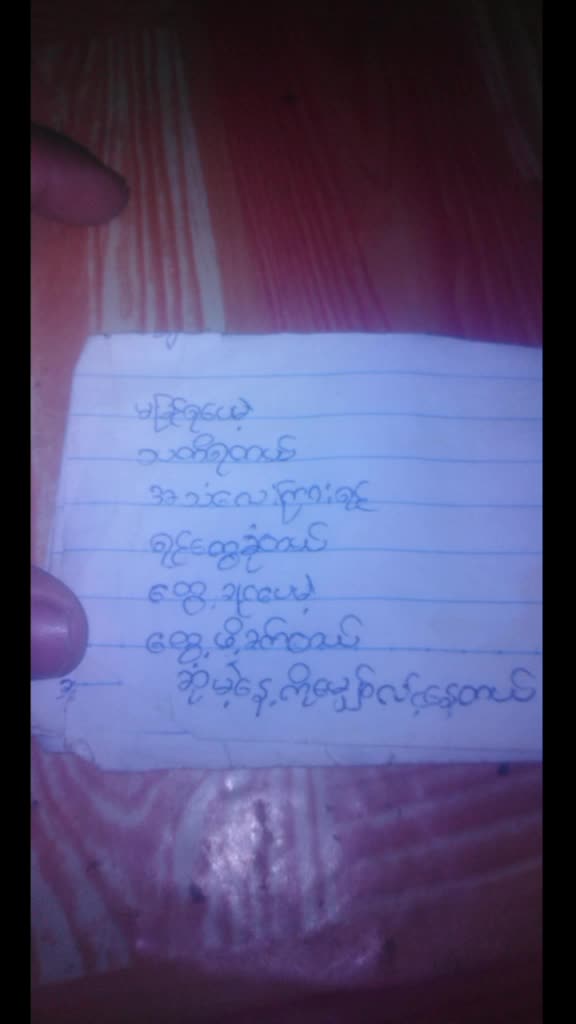 မမြင်ရပေမဲ့
သတိရတယ်
အသံလေးကြားရင်
ရင်တွေခုံတယ်
တွေ့ချင်ပေမဲ့
တွေ့ဖို့ခက်တယ်
ဆုံမဲ့နေ့ကိုမျှော်လင့်နေတယ်